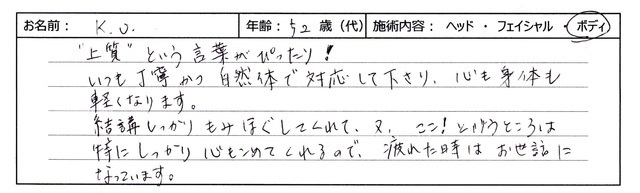 お名前： K.U. 年齢：52 歳（代） 施術内容：ヘッド ・ フェイシャル ・ ボディ
"上質" という言葉がぴったり！
いつも丁寧かつ自然体で対応して下さり、心も身体も
軽くなります。
結講しっかりもみほぐしてくれて、又、ここ！というところは
特にしっかり心をこめてくれるので、疲れた時はお世話に
なっています。